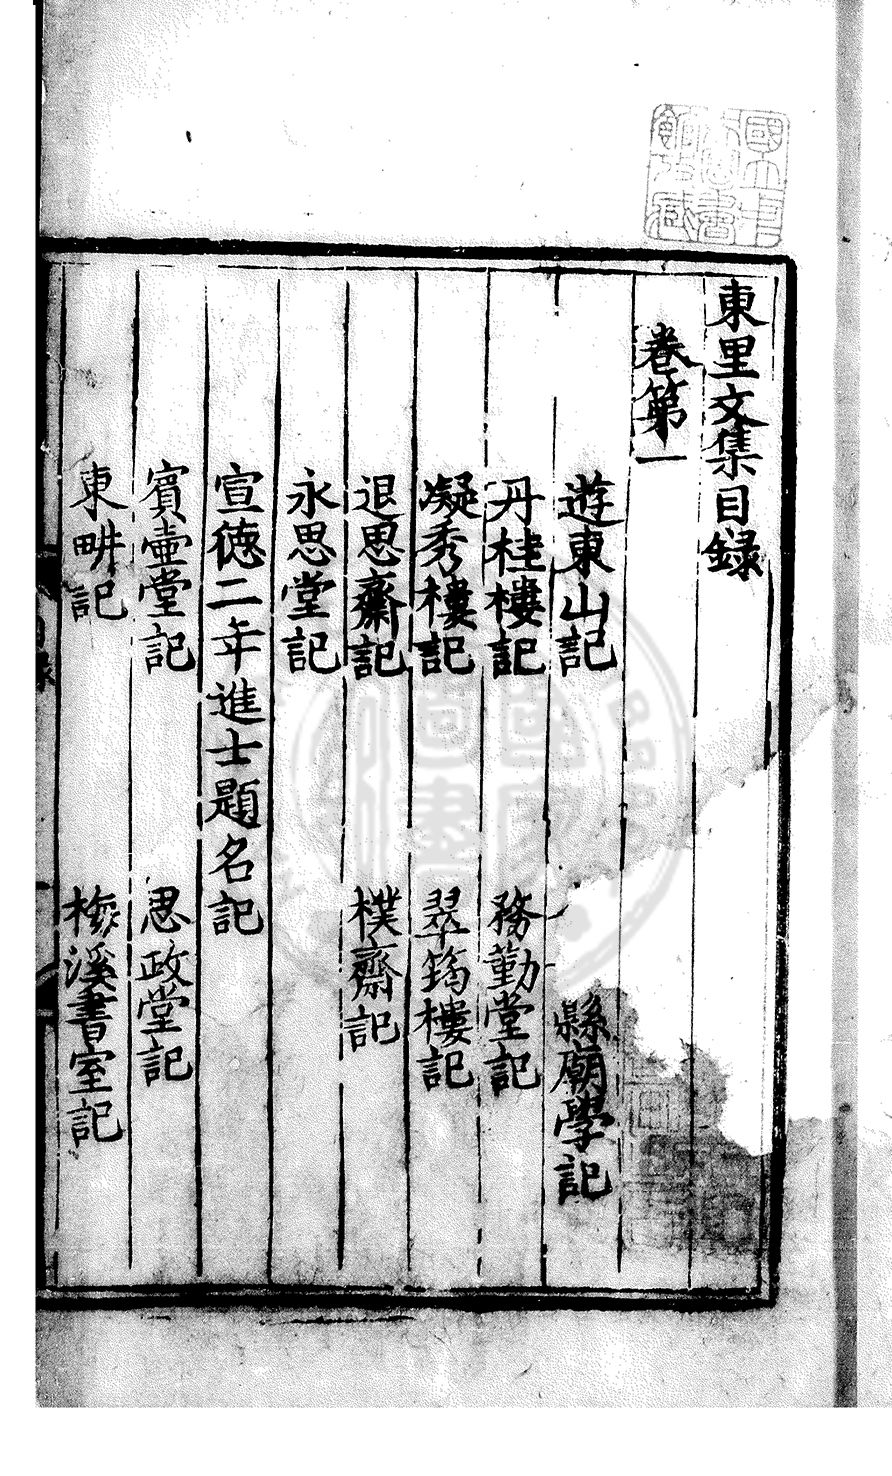 東里文集目録
卷第一
遊東山記　縣廟學記
丹桂樓記　務勤堂記
凝秀樓記　翠筠樓記
退思齋記　樸齋記
永思堂記
宣徳二年進士題名記
賓壺堂記　思政堂記
東畊記　梅溪書室記
目録